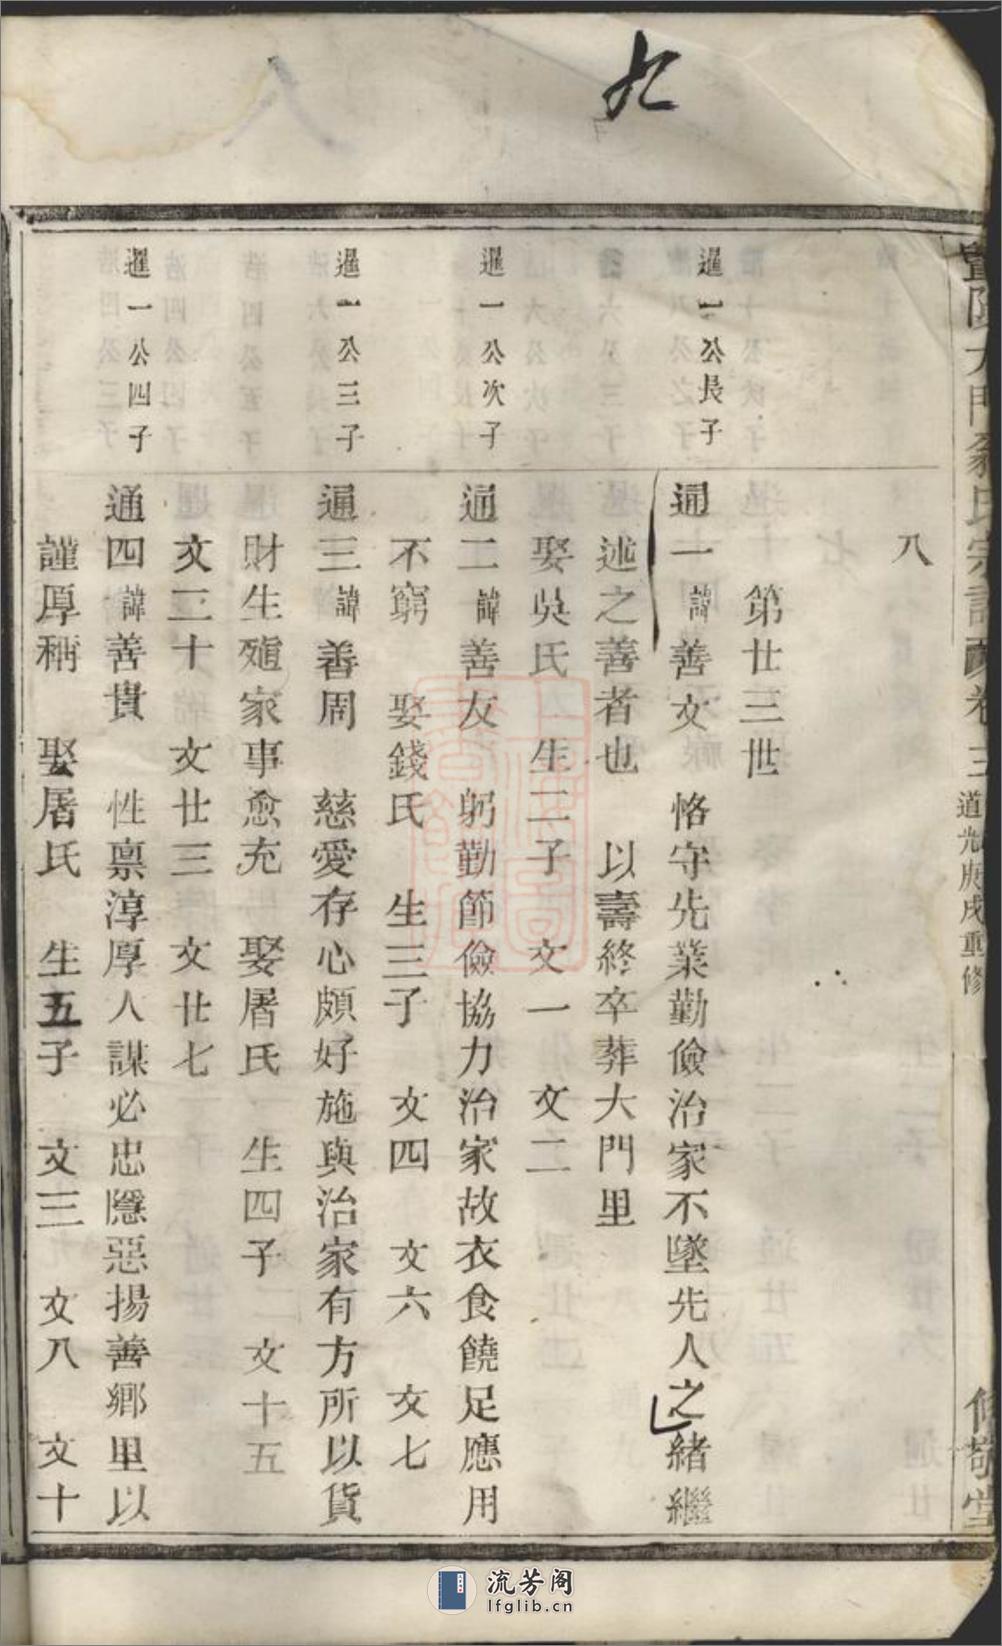 九
暨陽大門蔡氏宗譜 卷三 道光庚戌重修 敬堂
八
第廿三世
暹一公長子
通一諱善文 恪守先業勤儉治家不墜先人之緒繼
述之善者也 以壽終卒葬大門里
娶吳氏 生二子 文一 文二
暹一公次子
通二諱善友 躬勤節儉協力治家故衣食饒足應用
不窮 娶錢氏 生三子 文四 文六 文七
暹一公三子
通三諱善周 慈愛存心頗好施與治家有方所以貨
財生殖家事愈充 娶屠氏 生四子 文十五
文二十 文廿三 文廿七
暹一公四子
通四諱善貴 性禀淳厚人謀必忠隱惡揚善鄉里以
謹厚稱 娶屠氏 生五子 文三 文八 文十
流芳阁
lfglib.cn